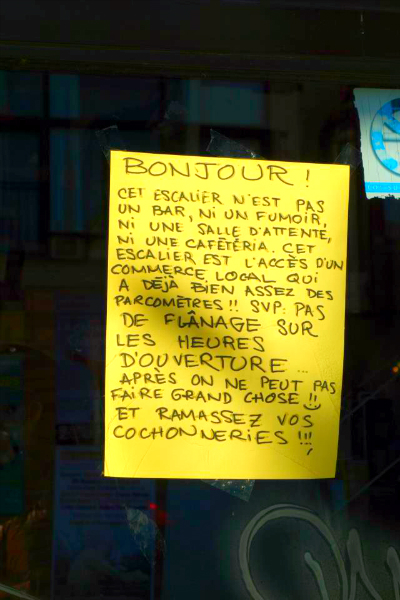 BONJOUR !
CET ESCALIER N'EST PAS
UN BAR, NI UN FUMOIR,
NI UNE SALLE D'ATTENTE,
NI UNE CAFÉTÉRIA. CET
ESCALIER EST L'ACCÈS D'UN
COMMERCE LOCAL QUI
A DÉJÀ BIEN ASSEZ DES
PARCOMÈTRES !! SVP: PAS
DE FLÂNAGE SUR
LES HEURES
D'OUVERTURE ...
APRÈS ON NE PEUT PAS
FAIRE GRAND CHOSE !!
ET RAMASSEZ VOS
COCHONNERIES !!!